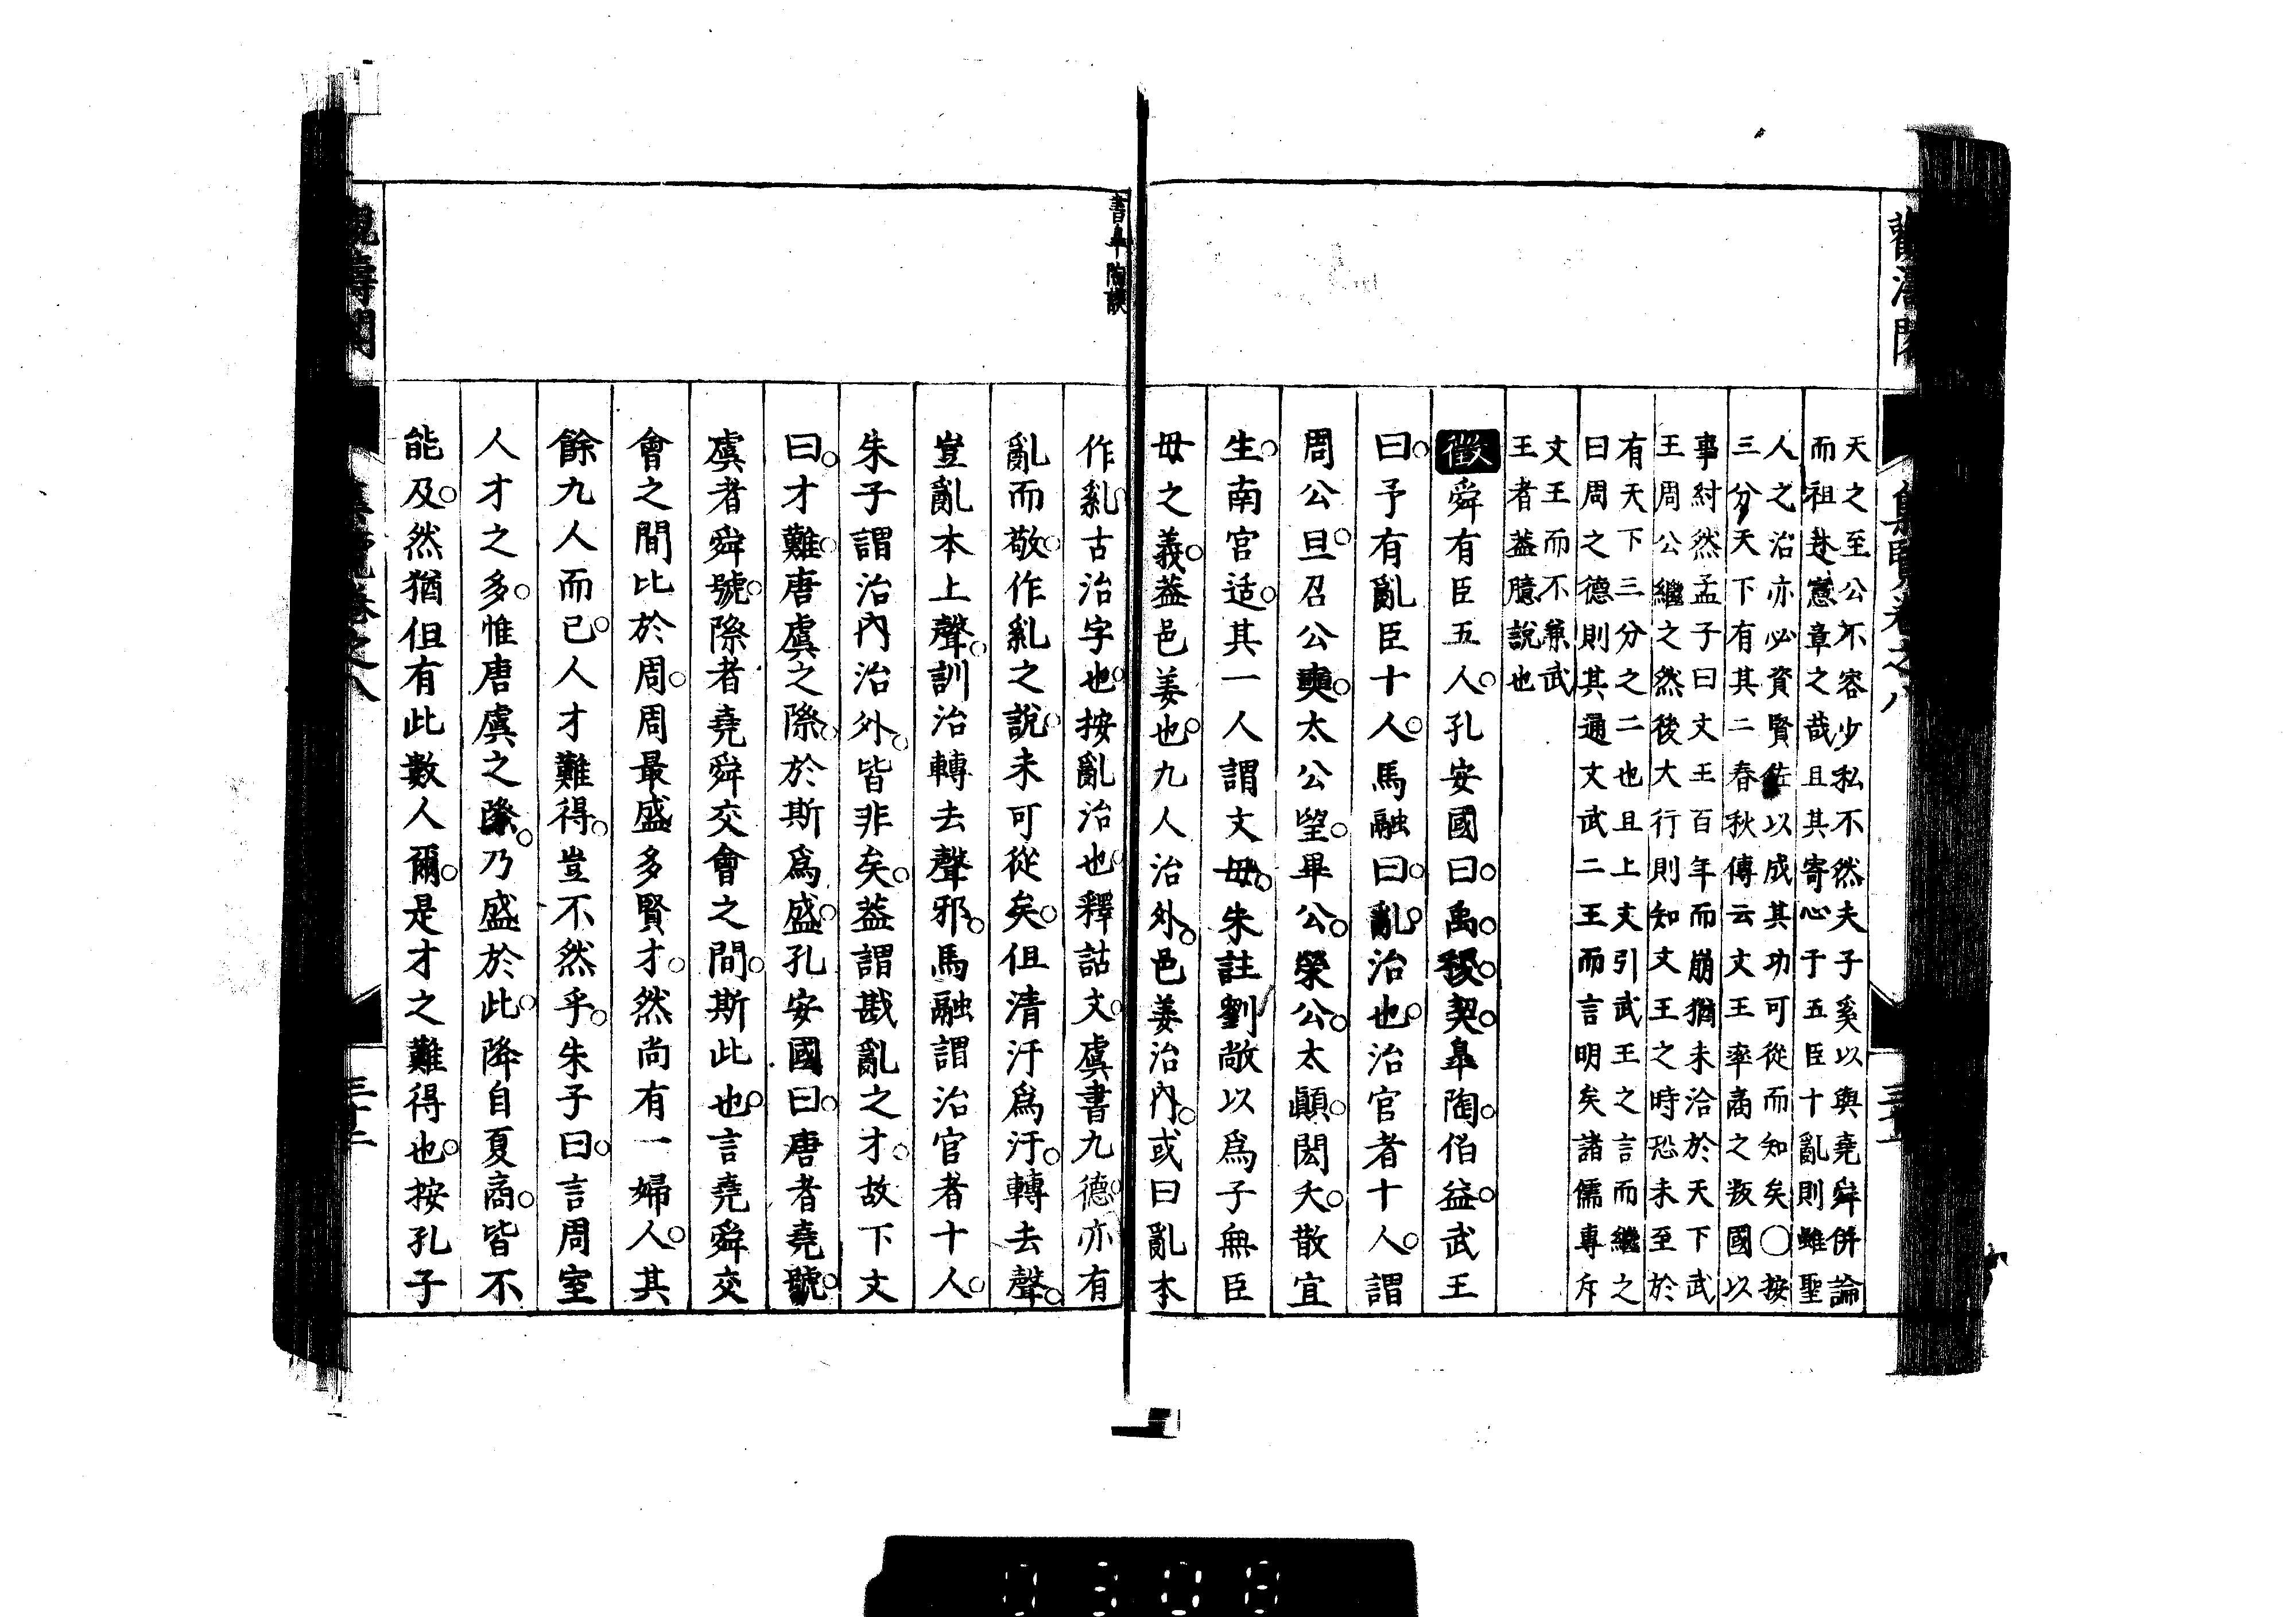 觀濤閣
卷之八
天之至公不容少私不然夫子奚以與堯舜併論
而祖述憲章之哉且其寄心于五臣十亂則雖聖
人之治亦必資賢佐以成其功可從而知矣〇按
三分天下有其二春秋傳云文王率商之叛國以
事紂然孟子曰文王百年而崩猶未洽於天下武
王周公繼之然後大行則知文王之時恐未至於
有天下三分之二也且上文引武王之言而繼之
曰周之德則其通文武二王而言明矣諸儒專斥
文王而不兼武
王者蓋臆說也
徵舜有臣五人。孔安國曰。禹。稷。契。皐陶。伯益。武王
曰。予有亂臣十人。馬融曰。亂。治也。治官者十人。謂
周公旦。召公奭。太公望。畢公。榮公。太顚。閎夭。散宜
生。南官适。其一人謂文母。朱註劉敞以爲子無臣
母之義。蓋邑姜也。九人治外。邑姜治內。或曰亂本
書皐陶謨
作乿。古治字也。按亂治也。釋詁文。虞書九德。亦有
亂而敬。作乿之說。未可從矣。但清汙爲汙。轉去聲。
豈亂本上聲。訓治轉去聲邪。馬融謂治官者十人。
朱子謂治內治外。皆非矣。蓋謂戡亂之才。故下文
曰。才難。唐虞之際。於斯爲盛。孔安國曰。唐者堯號。
虞者舜號。際者堯舜交會之間。斯此也。言堯舜交
會之間比於周。周最盛多賢才。然尚有一婦人。其
餘九人而已。人才難得。豈不然乎。朱子曰。言周室
人才之多。惟唐虞之際。乃盛於此。降自夏商。皆不
能及。然猶但有此數人爾。是才之難得也。按孔子
卷之八
0308